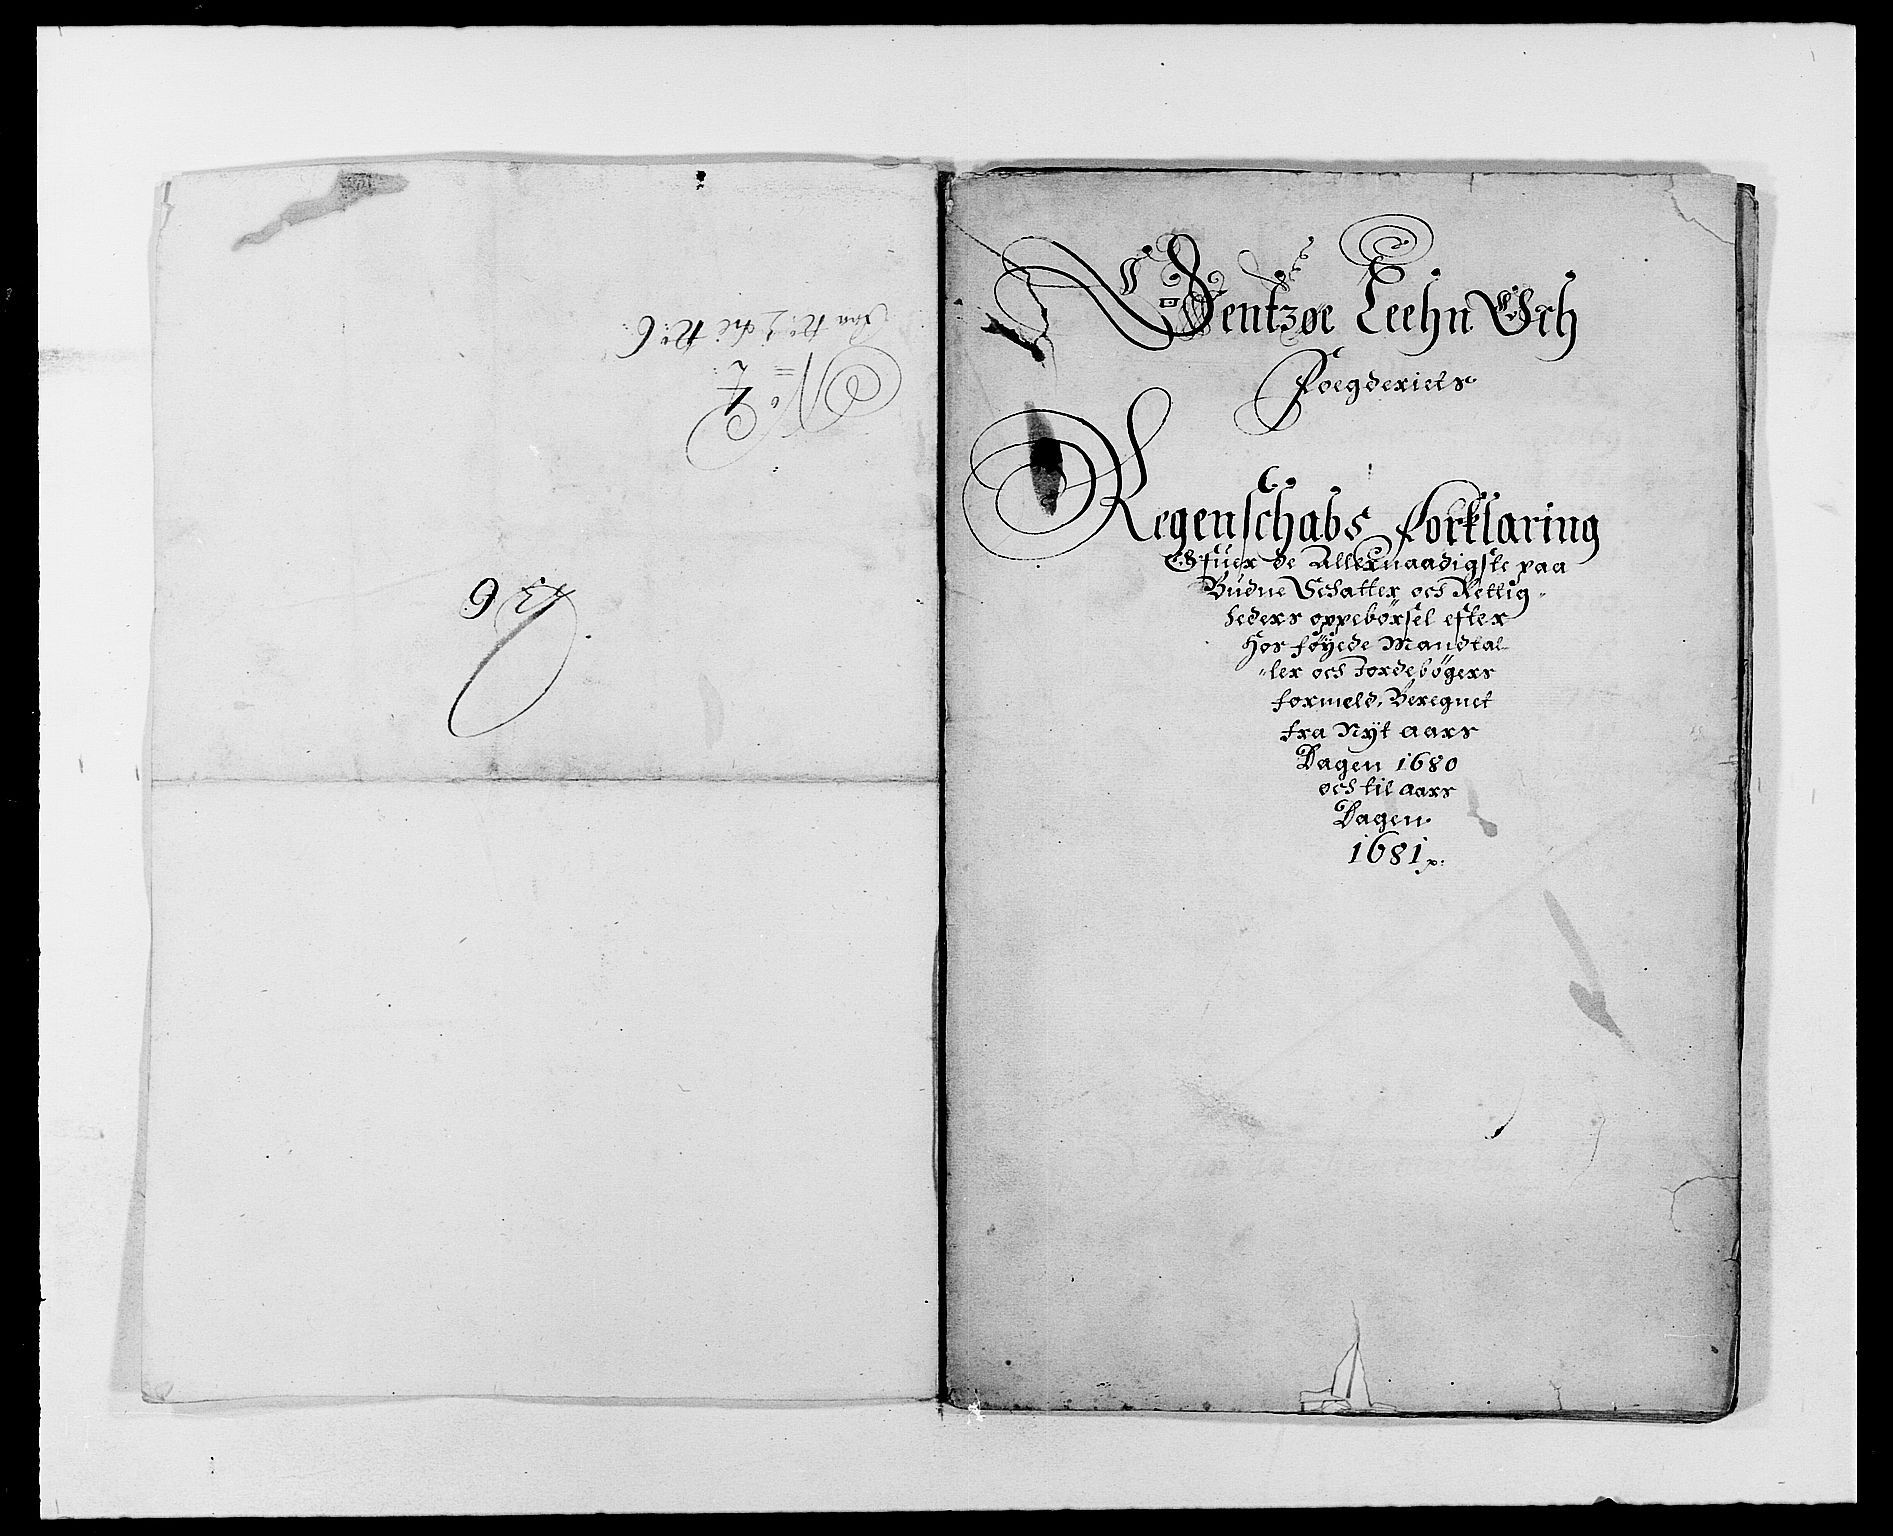 No 2
Sentzøe Leehn Och
Foegderiets
Regenschabs forklaring
Ofuer de Allernaadigste paa
Budne Schatter och Rettig-
heders oppebørsel efter
Hos føyede Mandtal-
-ler och Jordebøgers
formeld, Beregnet
fra Nyt aars
Dagen 1680
och til aars
Dagen
1681